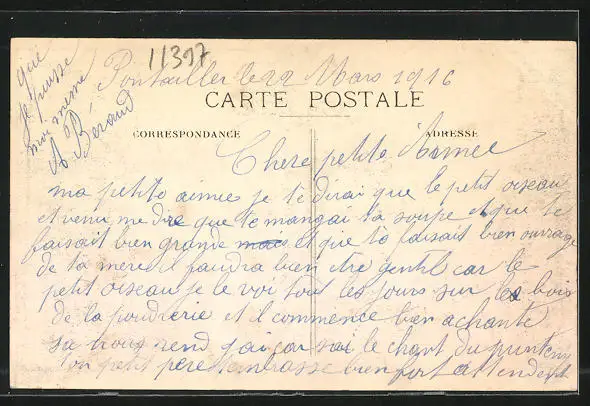 11317
Pontailler le 22 Mars 1916
CARTE POSTALE
CORRESPONDANCE
ADRESSE
Chere petite Aimee
ma petite aimee je te dirai que le petit oiseau
et venu me dire que te mangai ta soupe et que te
faisait bien grande mais et que te faisait bien ouvrage
de ta mere il faudra bien etre gentil car le
petit oiseau je le voi tout les jours sur le bois
de la poudrerie et il commence bien a chanté
sa nous rend gai car sai le chant du printemp
ton petit pere tembrasse bien fort attendent
que
je puisse
moi meme
A Béraud